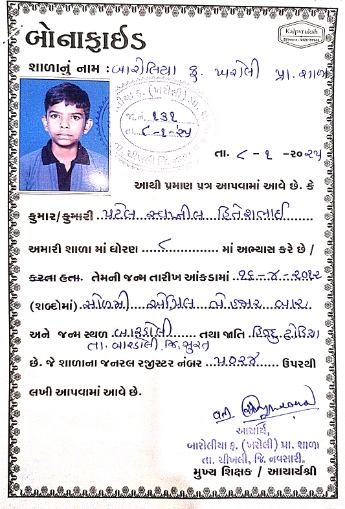 Kalpvruksh
બોનાફાઈડ
શાળાનું નામ : બારોલિયા ફ. ખરોલી પ્રા. શાળા
જા.નં. 131
તા. ૮-૧-૨૫
તા. ૮-૧-૨૦૨૫
આથી પ્રમાણ પત્ર આપવામાં આવે છે. કે
કુમાર/કુમારી પટેલ સ્વપ્નીલ હિતેશભાઈ
અમારી શાળા માં ધોરણ ......૮...... માં અભ્યાસ કરે છે /
કરતા હતા. તેમની જન્મ તારીખ આંકડામાં ૧૬-૪-૨૦૧૨
(શબ્દોમાં) સોળમી એપ્રિલ બે હજાર બાર
અને જન્મ સ્થળ બારડોલી તથા જાતિ હિન્દુ ઢોડિયા
તા. બારડોલી જિ. સુરત
છે. જે શાળાના જનરલ રજીસ્ટર નંબર ૫૦૨૪ ઉપરથી
લખી આપવામાં આવે છે.
આચાર્ય,
બારોલીયા ફ. (ખરોલી) પ્રા. શાળા
તા. ચીખલી, જિ. નવસારી.
મુખ્ય શિક્ષક / આચાર્યશ્રી